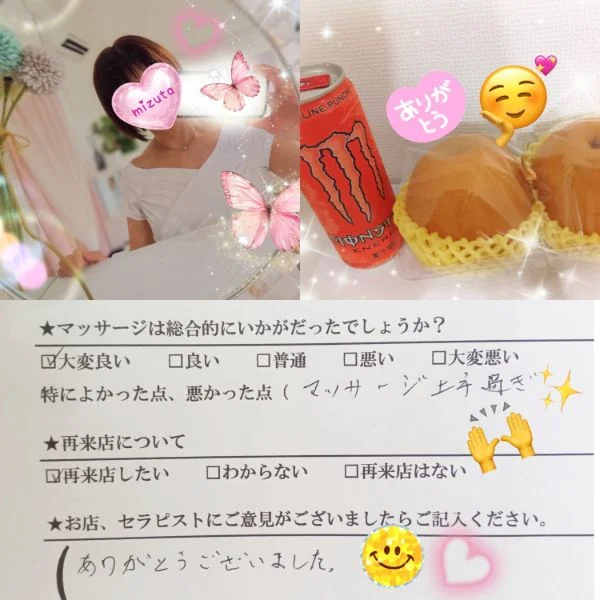 mizuta
LINE PUNCH
ありが
とう
MONSTER
ENERGY
★マッサージは総合的にいかがだったでしょうか？
☑大変良い □良い □普通 □悪い □大変悪い
特によかった点、悪かった点（ マッサージ上手過ぎ
★再来店について
☑再来店したい □わからない □再来店はない
★お店、セラピストにご意見がございましたらご記入ください。
ありがとうございました。